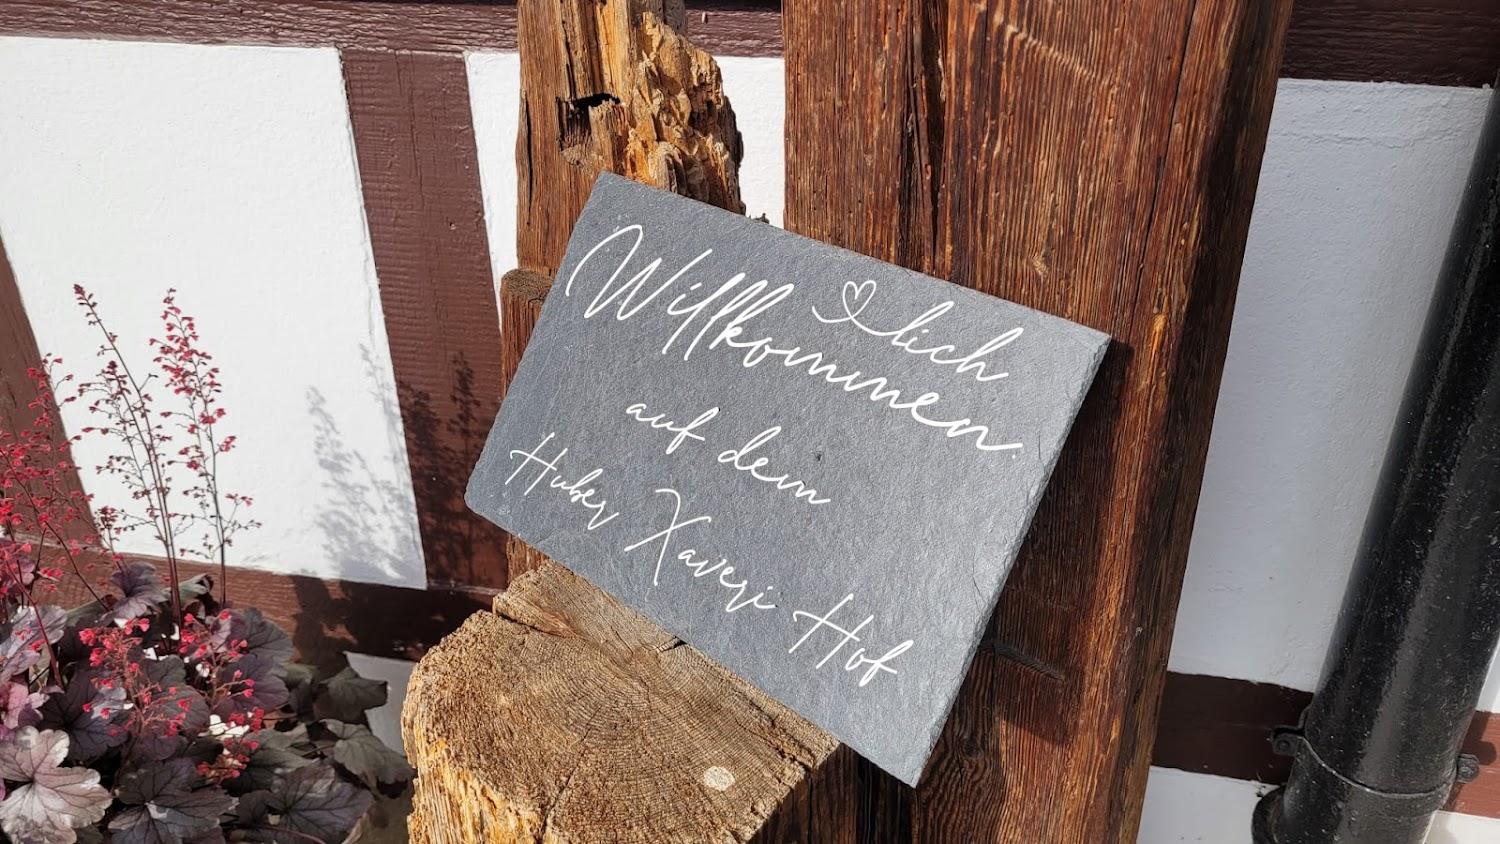 ♡lich
Willkommen
auf dem
Huber Xaveri Hof